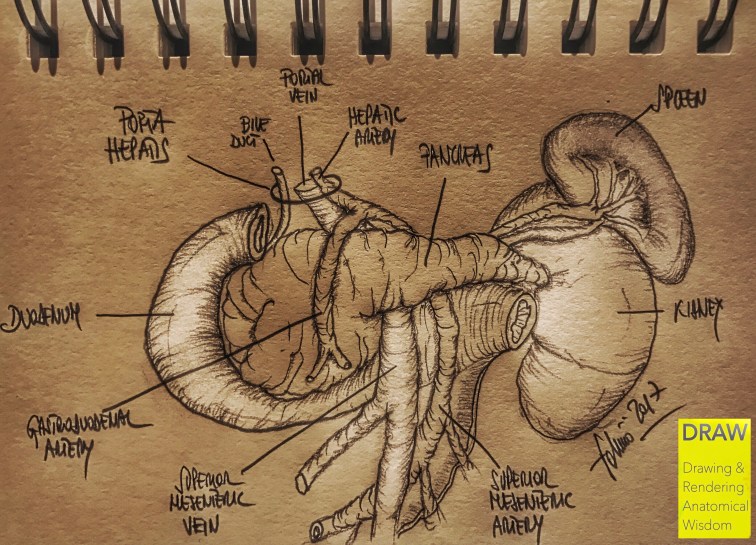 PORTAL
VEIN
PORTA
HEPATIS
BILE
DUCT
HEPATIC
ARTERY
PANCREAS
SPLEEN
DUODENUM
KIDNEY
GASTRODUODENAL
ARTERY
SUPERIOR
MESENTERIC
VEIN
SUPERIOR
MESENTERIC
ARTERY
2017
DRAW
Drawing &
Rendering
Anatomical
Wisdom